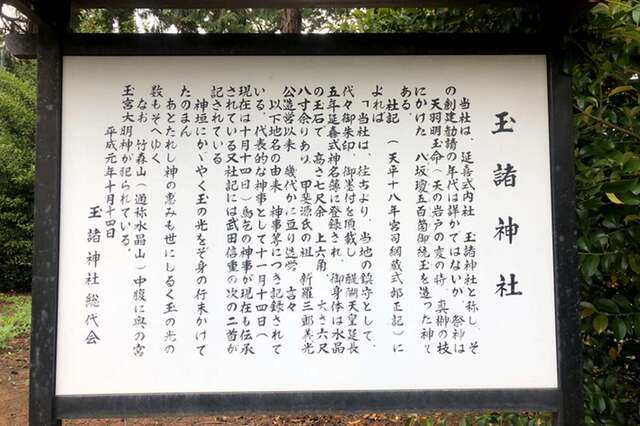 玉諸神社
当社は、延喜式内社 玉諸神社と称し、そ
の創建勧請の年代は詳かではないが 祭神は
天羽明玉命(天の岩戸の変の時 真榊の枝
にかけた 八坂瓊五百箇御統玉を造った神で
ある。
社記(天平十八年宮司網蔵式部正記)に
よれば
「当社は、往古より、当地の鎮守として、
代々御朱印、御墨付を頂戴し 醍醐天皇延長
五年延喜式神名簿に登録され、御身体は水晶
の玉石で 高さ七尺余 上六角 太さ六尺
八寸余りあり、甲斐源氏の祖 新羅三郎義光
公造営以来 幾代かに亘り造営 云々
以下地名の由来 神事等につき記録されて
いる。代表的な神事として十一月十四日(
現在は十月十四日)鳥乞の神事が現在も伝承
されている又社記には武田信重の次の二首が
記されている
神垣にかゞやく玉の光をぞ身の行末かけて
たのまん
あとたれし神の恵みも世にしるく玉の光の
数もそへゆく
なお 竹森山(通称水晶山)中腹に奥の宮
玉宮大明神が祀られている。
平成元年十月十四日
玉諸神社総代会